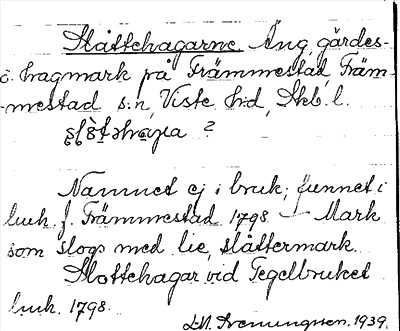 Slåttehagarne. Äng, gärdes-
o. hagmark på Främmestad, Främ-
mestad s:n, Viste h:d, Skb. l.
?
Namnet ej i bruk; funnet i
luch. f. Främmestad 1798 — Mark
som slogs med lie, slåttermark.
Slottehagar vid Tegelbruket
luch. 1798.
1939.